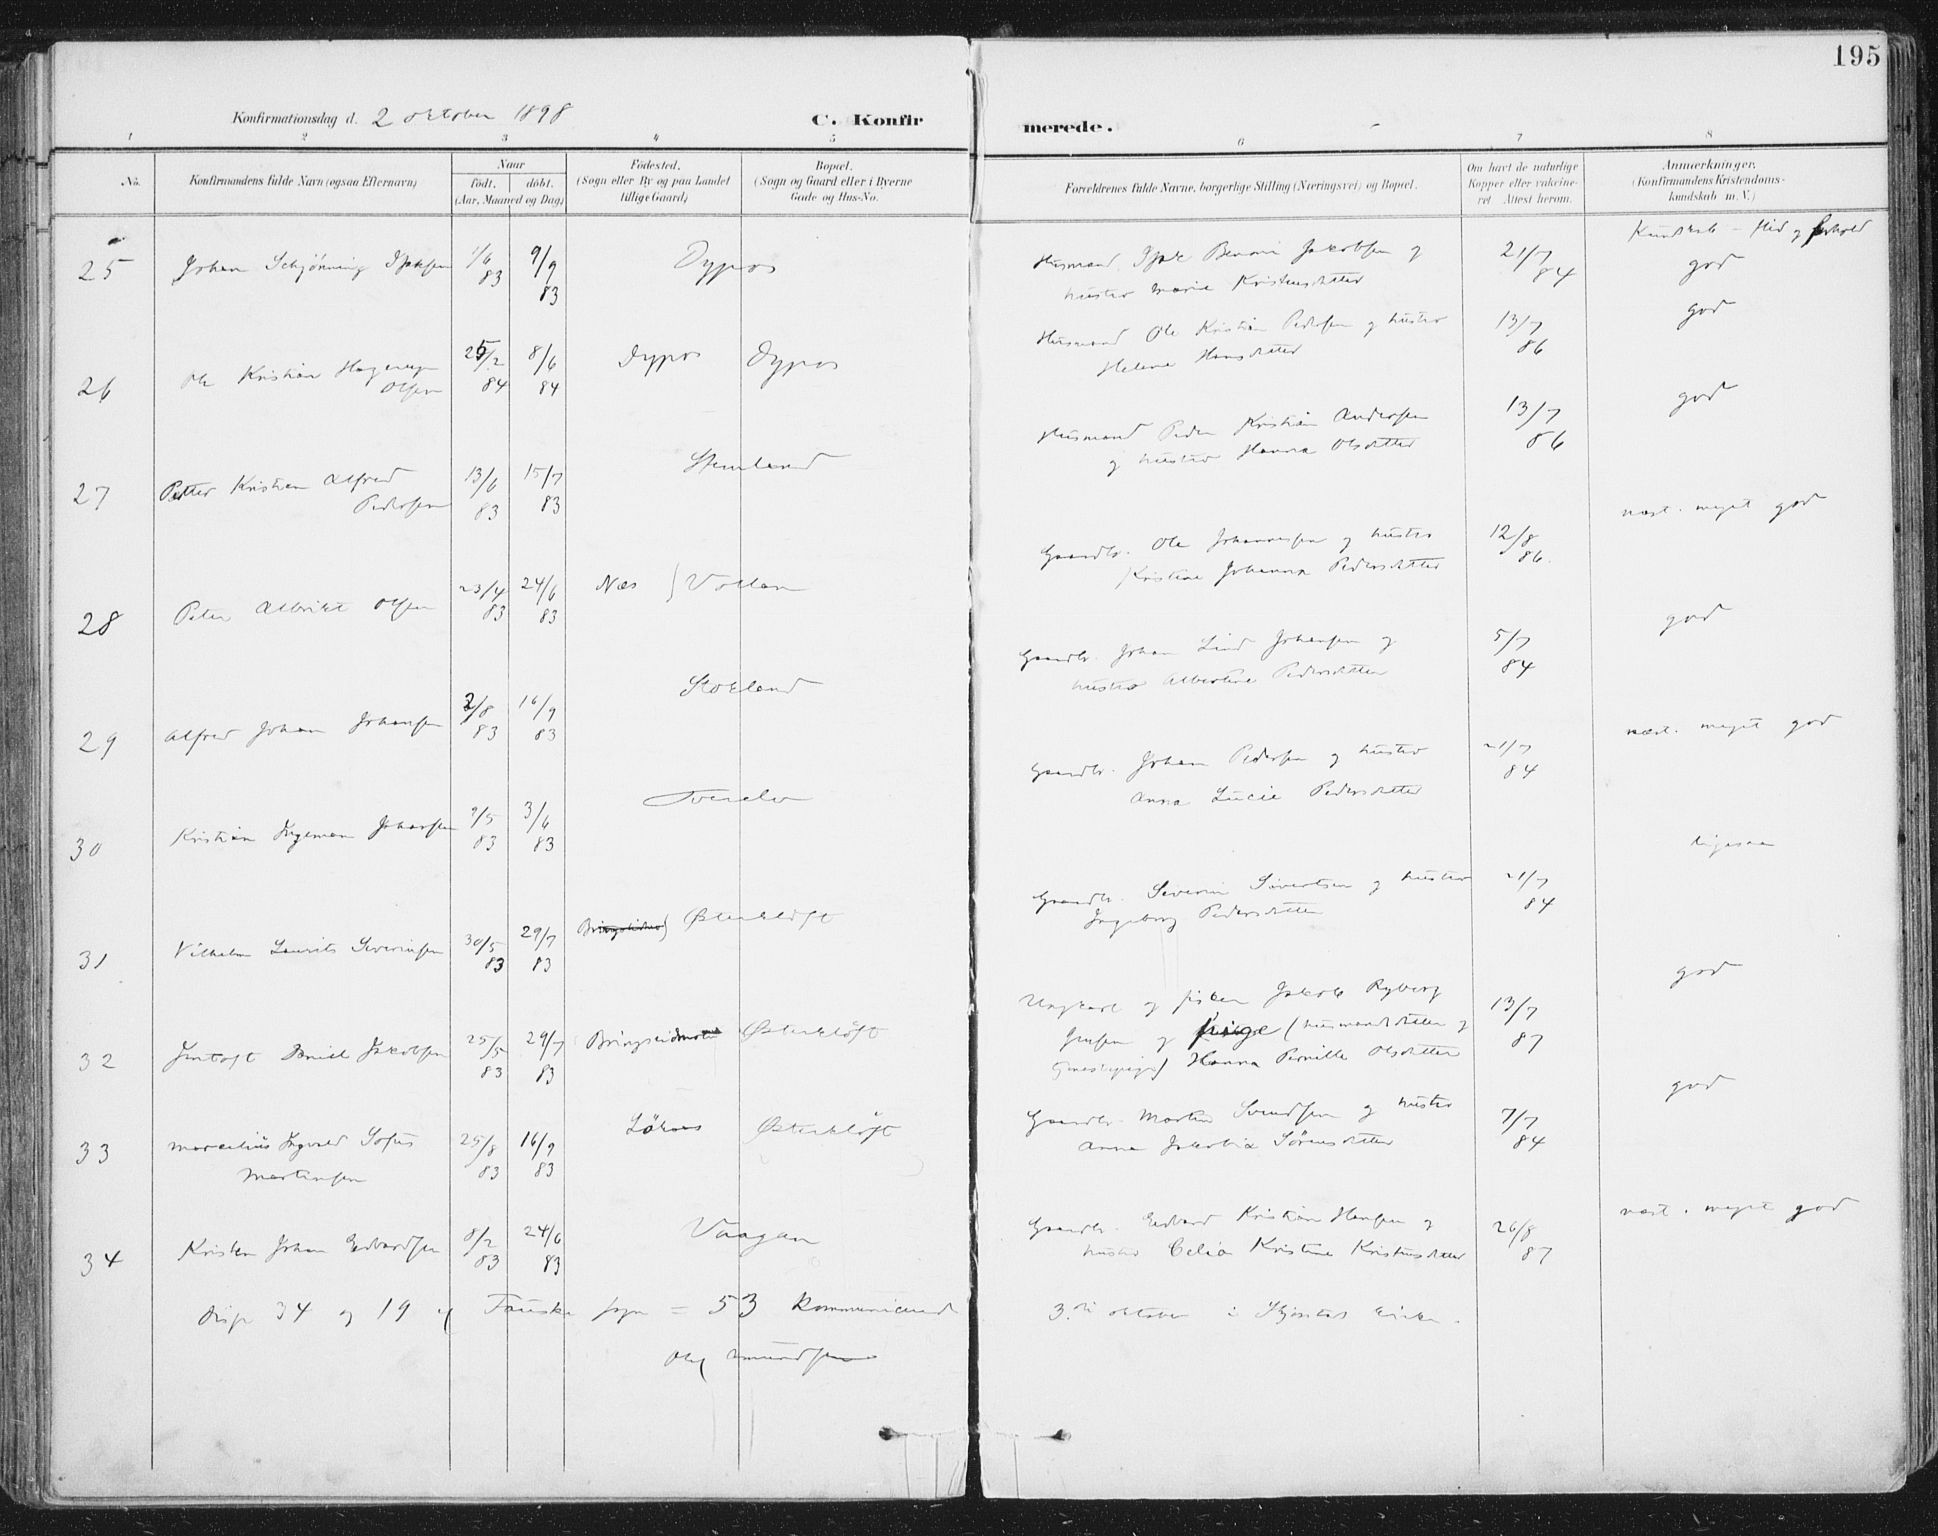 195
Konfirmationsdag d. 2 oktober 1898
C. Konfirmerede.
1 2 3 4 5 6 7 8
No.
Konfirmandens fulde Navn (ogsaa Efternavn)
Naar
født. døbt.
(Aar, Maaned og Dag)
Fødested.
(Sogn eller By og paa Landet
tillige Gaard)
Bopæl.
(Sogn og Gaard eller i Byerne
Gade og Hus-No.
Forældrenes fulde Navne, borgerlige Stilling (Næringsvei) og Bopæl.
Om havt de naturlige
Kopper eller vakcine-
ret Attest herom.
Anmærkninger.
(Konfirmandens Kristendoms-
kundskab m. V.)
Kundskab - Flid og forhold
25 Johan Schjönning 1/6 83 9/9 83 Dypos
Husmand Benoni Jakobsen og
hustro Marie Kristensdatter
21/7 84 god
26 Ole Kristian Hagerup
Olsen
25/2 84 8/6 84 Dypos Dypos
Husmand Ole Kristian Pedersen og hustro
Helene Hansdatter
13/7 86 god
27 Petter Kristian Alfred
Pedersen
13/6 83 15/7 83
Husmand Peder Kristian Andersen
og hustro Hanna Olsdatter
13/7 86 god
28 Peter Albrikt Olsen 23/4 83 24/6 83 Næs ) Vollan
Gaardbr. Ole Johannesen og hustro
Kristine Johanna Pedersdatter
12/8 86. næst. meget god
29 Alfred Johan Johansen /8 83 16/9 83 Stokland
Gaardbr. Johan Lind Johansen og
hustro Albertine Pedersdatter
5/7 84 god
30 Kristian Ingeman Johansen 9/5 83 3/6 83
Gaardbr. Johan Pedersen og hustro
Anna Lucie Pedersdatter
21/7 84 næst. meget god
31 Vilhelm Laurits Severinsen 30/5 83 29/7 83 Østerkløft
Gaardbr. Severin Sivertsen og hustro
Ingeborg Pedersdatter
21/7 84 ligesaa
32 Jentoft Daniel Jakobsen 25/5 83 29/7 83 Østerkløft
Ungkarl og fisker Jakob Ryberg
Jensen og pige (husmandsdatter og
Hanna Pernille Olsdatter
13/7 87 god
33 Marcelius Ingvald Sofus
Martinsen
25/8 83 16/9 83 Østerkløft
Gaardbr. Martin Svendsen og hustro
Anna Jakobia Sørensdatter
7/7 84 god
34 Kristen Johan Edvardsen 8/2 83 24/6 83 Vaagan
Gaardbr. Edvard Kristian Hansen og
hustro Celia Kristine Kristensdatter
26/8 87 næst. meget god
Disse 34 og 19 af Fauske sogn = 53 kommuniserede
3. oktober i Skjerstad kirke.